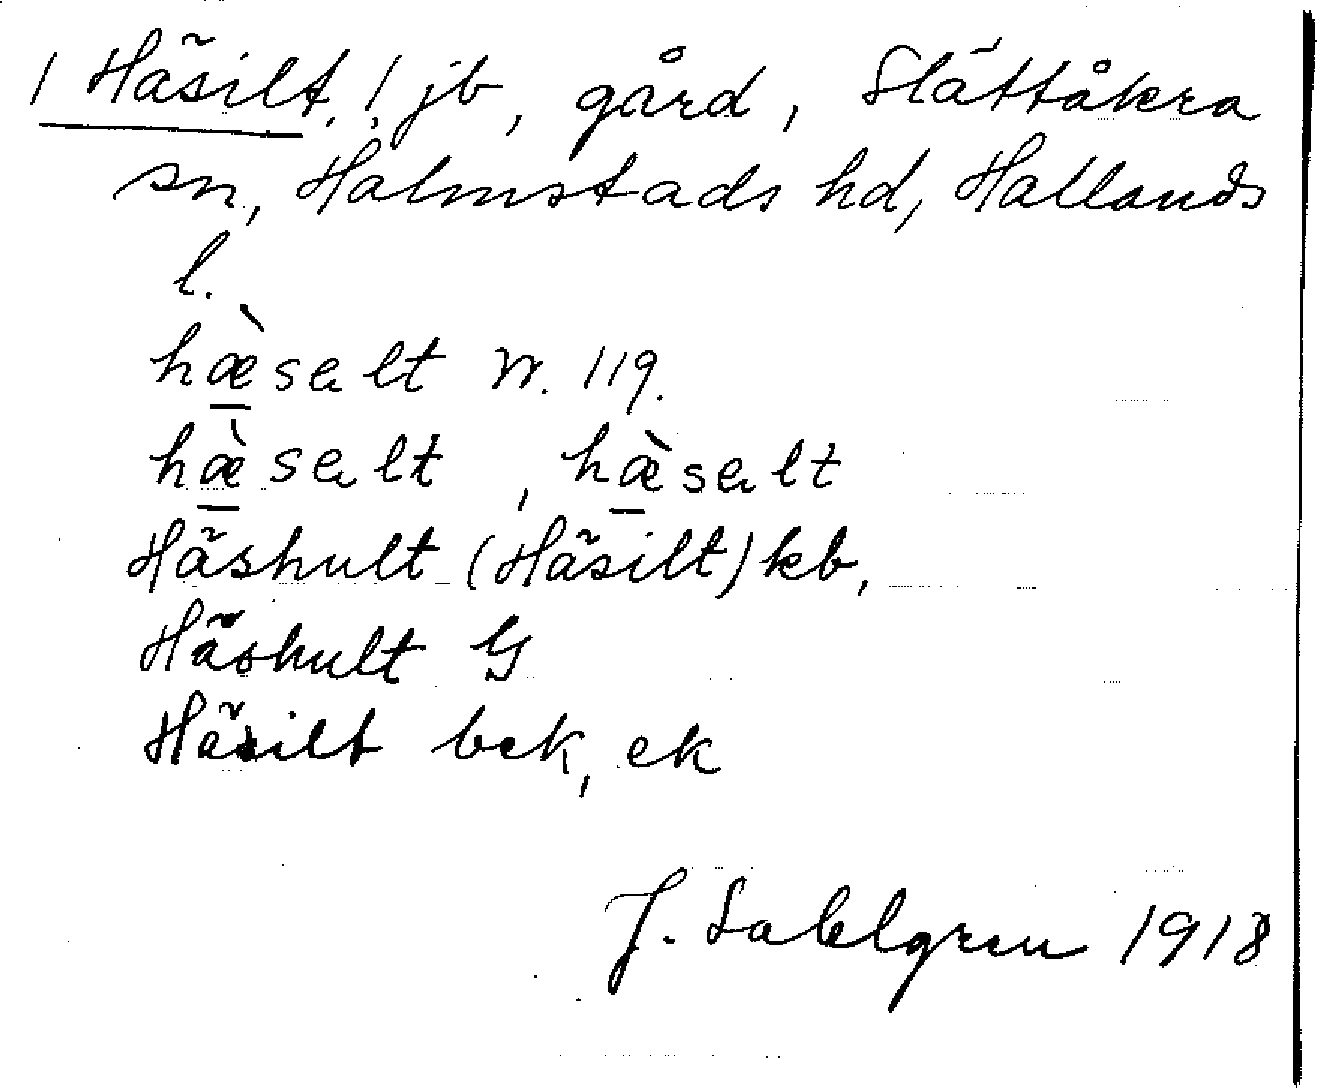 / Häsilt, ! jb, gård, Slättåkra
sn, Halmstads hd, Hallands
l.
hæ̀salt W. 119.
hæ̀salt, hæ̀salt
Häshult (Häsilt) kb,
Häshult G
Häsilt bek, ek
J. Sahlgren 1918